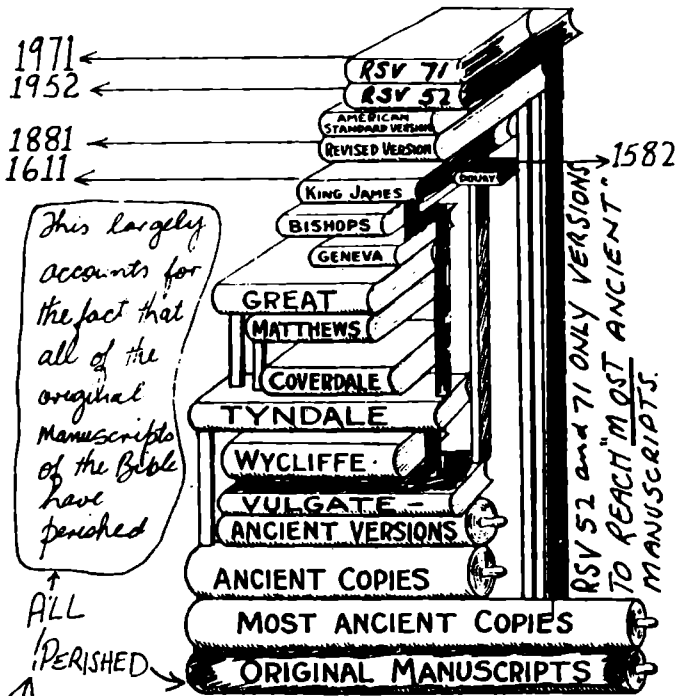 1971
1952
1881
1611
RSV 71
RSV 52
AMERICAN
STANDARD VERSION
REVISED VERSION
KING JAMES
DOUAY
1582
BISHOPS
GENEVA
GREAT
MATTHEWS
COVERDALE
TYNDALE
WYCLIFFE.
VULGATE -
ANCIENT VERSIONS
ANCIENT COPIES
MOST ANCIENT COPIES
ORIGINAL MANUSCRIPTS
This largely
accounts for
the fact that
all of the
original
manuscripts
of the Bible
have
perished
ALL
PERISHED
RSV 52 and 71 ONLY VERSIONS
TO REACH "MOST ANCIENT"
MANUSCRIPTS.